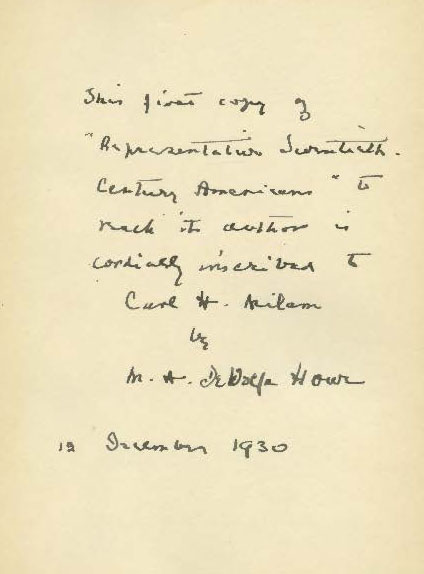 This first copy of
"Representative Twentieth-
Century Americans" to
reach its author is
cordially inscribed to
Carl H. Milam
by
M. A. DeWolfe Howe
12 December 1930